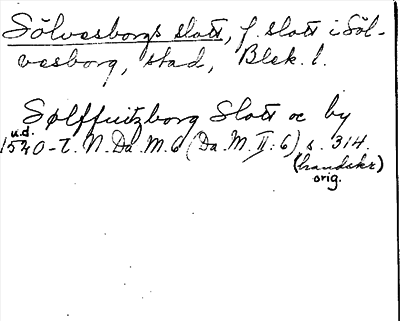 Sölvesborgs slott, f. slott i Söl-
vesborg, stad, Blek. l.
Sølffuitzborg Slott oc by
u.d.
1540-t. N. Da. M. 6 (Da. M. II: 6), s. 314.
(handskr)
orig.